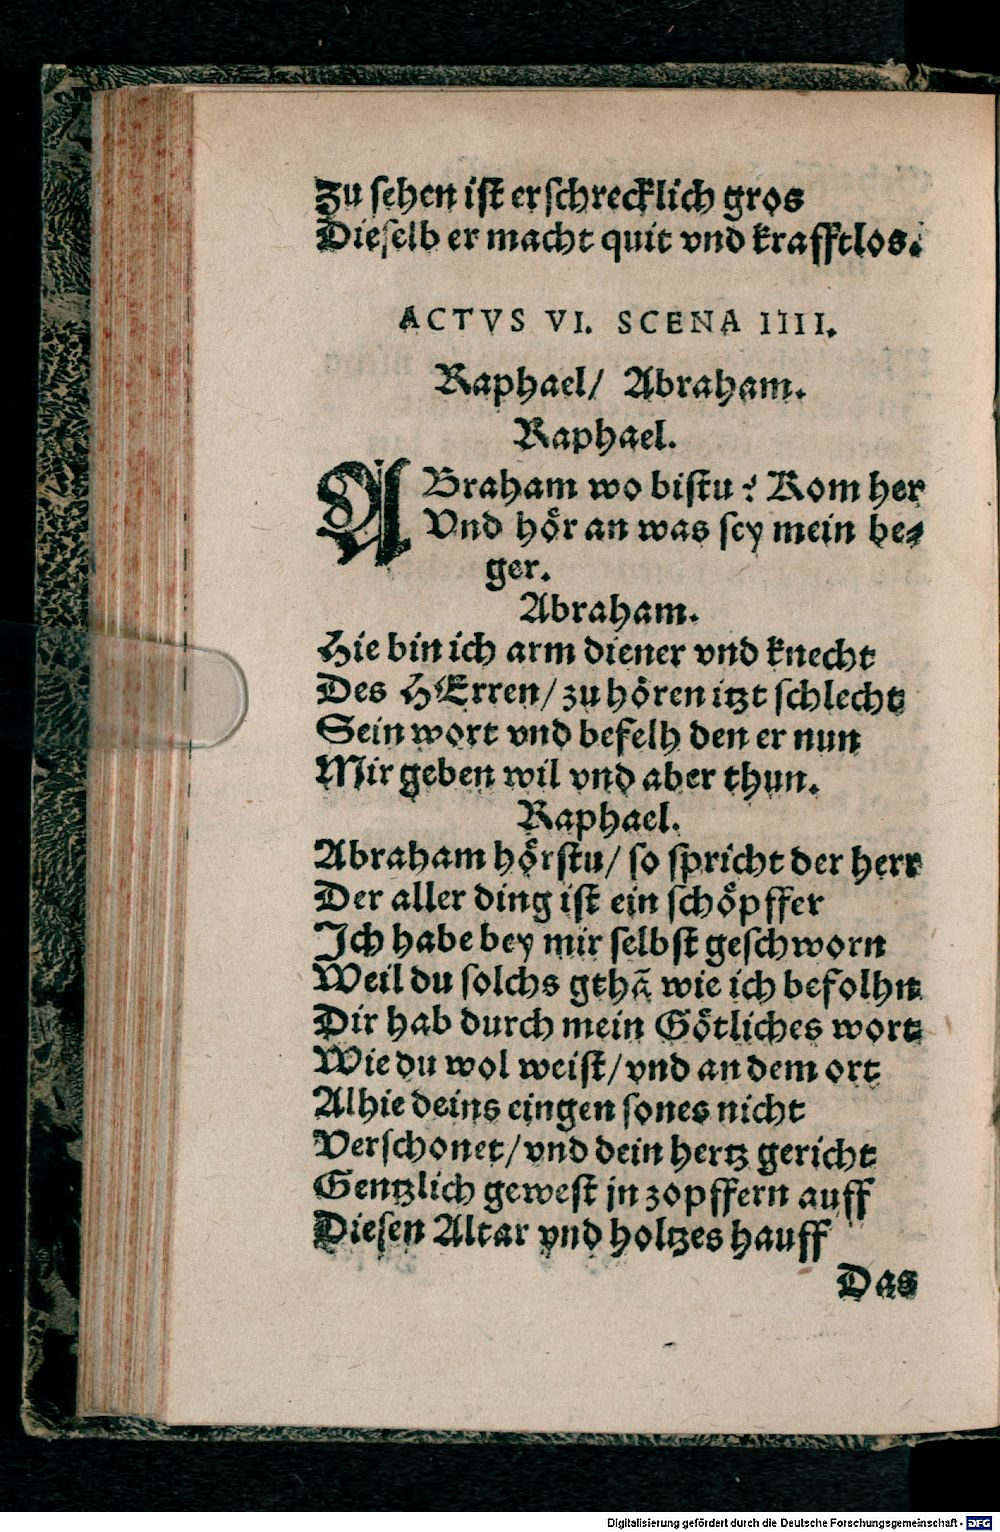 Zu sehen ist erschrecklich gros
Dieselb er macht quit vnd krafftlos.
ACTVS VI. SCENA IIII.
Raphael/ Abraham.
Raphael.
ABraham wo bistu? Kom her
Vnd hoͤr an was sey mein be⸗
ger.
Abraham.
Hie bin ich arm diener vnd knecht
Des HErren/ zu hoͤren itzt schlecht
Sein wort vnd befelh den er nun
Mir geben wil vnd aber thun.
Raphael.
Abraham hoͤrstu/ so spricht der herr
Der aller ding ist ein schoͤpffer
Ich habe bey mir selbst geschworn
Weil du solchs gthã wie ich befolhn
Dir hab durch mein Goͤtliches wort
Wie du wol weist/ vnd an dem ort
Alhie deins eingen sones nicht
Verschonet/ vnd dein hertz gericht
Gentzlich gewest jn zopffern auff
Diesen Altar vnd holtzes hauff
Das
Digitalisierung gefördert durch die Deutsche Forschungsgemeinschaft - DFG